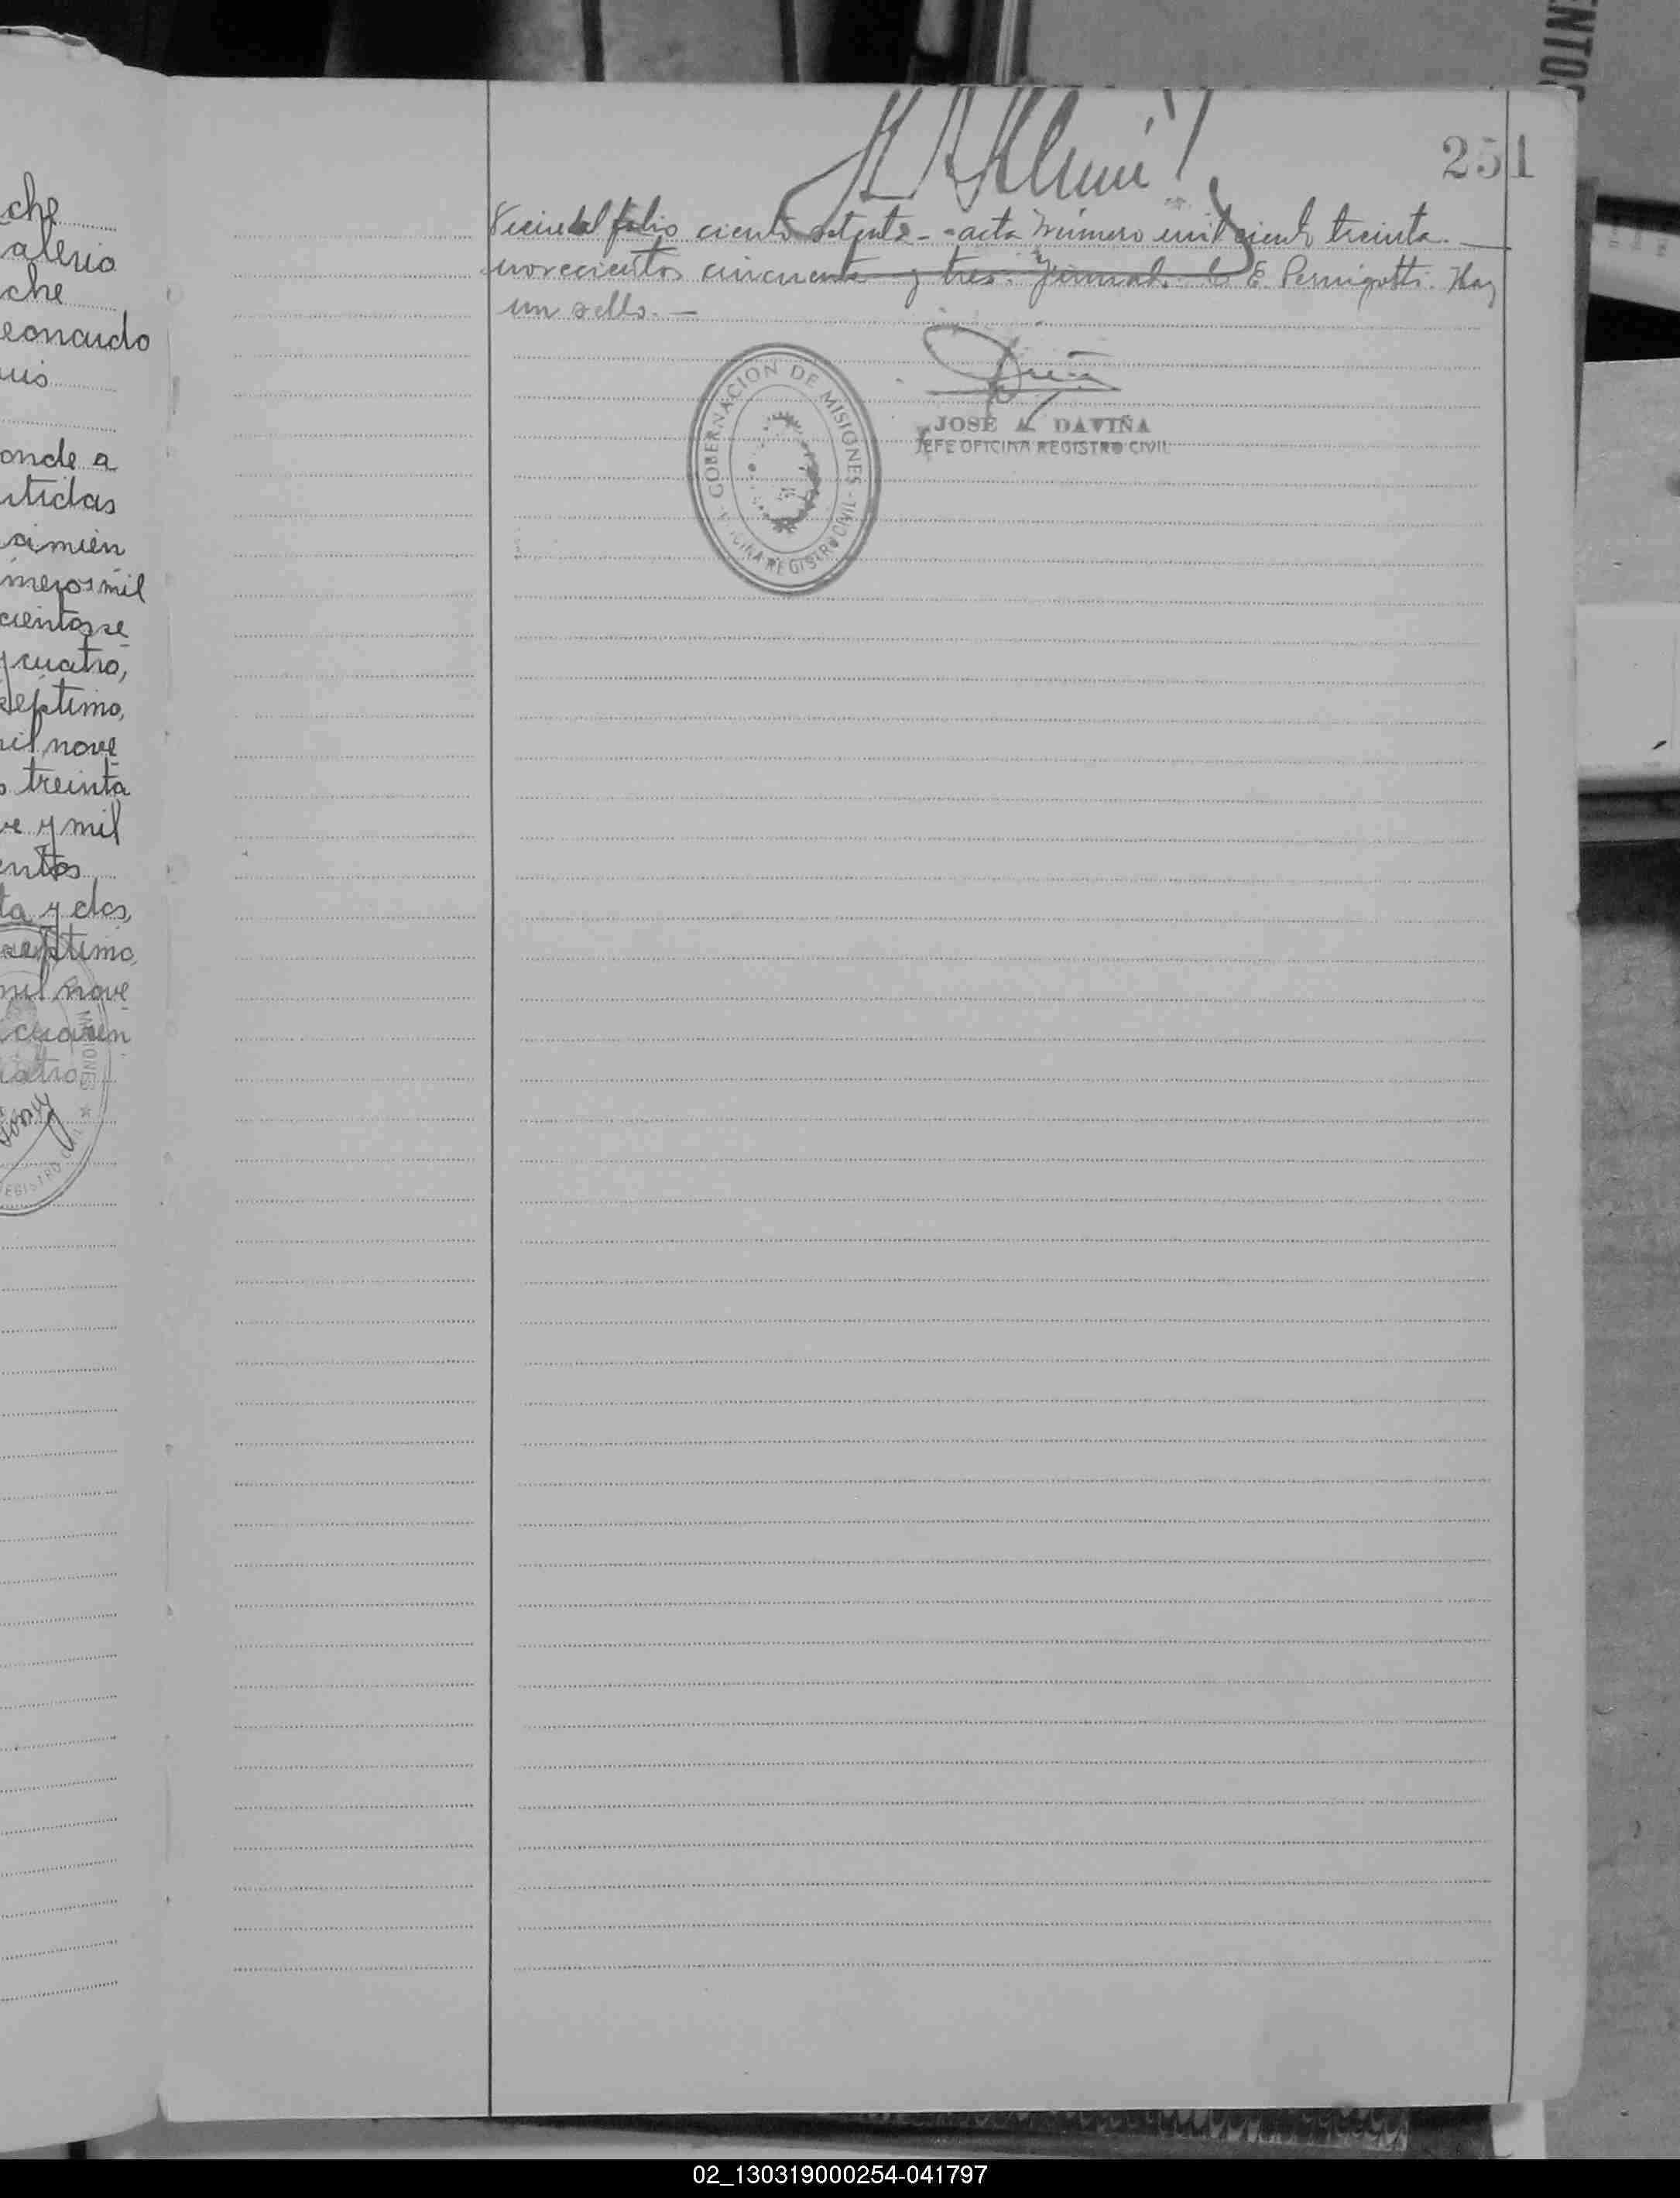 che
alerio
che
eonardo
uis
onde a
rtidas
cimien
meros mil
cientos se
y cuatro,
septimo,
mil nove
treinta
ve y mil
entos
ta y dos,
septimo,
mil nove
cuaren
atro
MISIONES ★
REGISTRO C
ENTOS
251
Viene del folio ciento setenta - acta número mil ciento treinta. —
novecientos cincuenta y tres. Firmado. E. Pernigotti. Hay
un sello. —
GOBERNACION DE MISIONES - OFICINA REGISTRO CIVIL -
JOSÉ A. DAVIÑA
JEFE OFICINA REGISTRO CIVIL
02_130319000254-041797